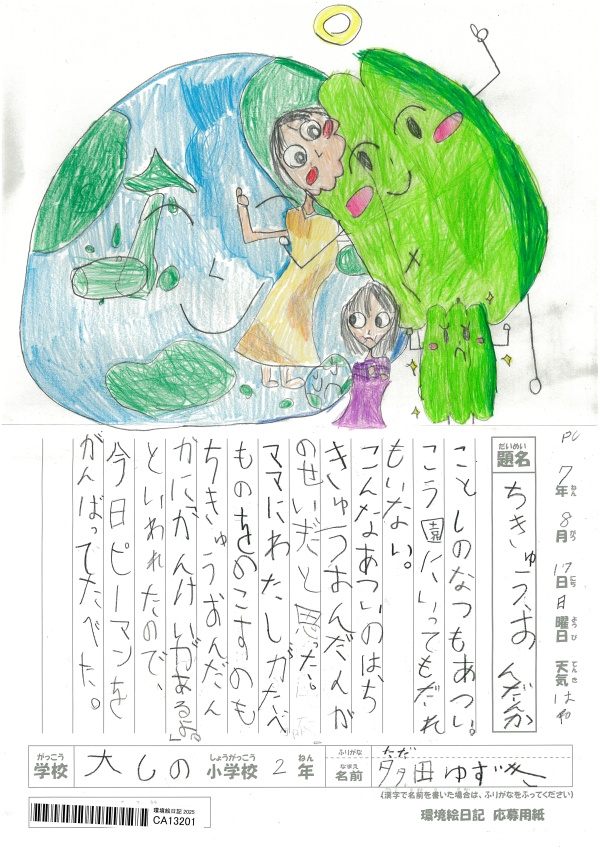 7年ねん 8月がつ 17日にち 日曜日ようび 天気てんき はれ
だいめい
題名 ちきゅうおんだんか
ことしのなつもあつい。
こう園に、いってもだれ
もいない。
こんなあついのは、ち
きゅうおんだんが
のせいだと思った。
ママにわたしがたべ
ものをのこすのも
ちきゅうおんだん
かにかんけいがあるよ」
といわれたので、
今日ピーマンを
がんばってたべた。
がっこう しょうがっこう ねん ふりがな ただ
学校 大しの 小学校 2年 なまえ 名前 多田ゆずき
(漢字で名前を書いた場合は、ふりがなをふってください)
環境絵日記 応募用紙
環境絵日記 2025
CA13201